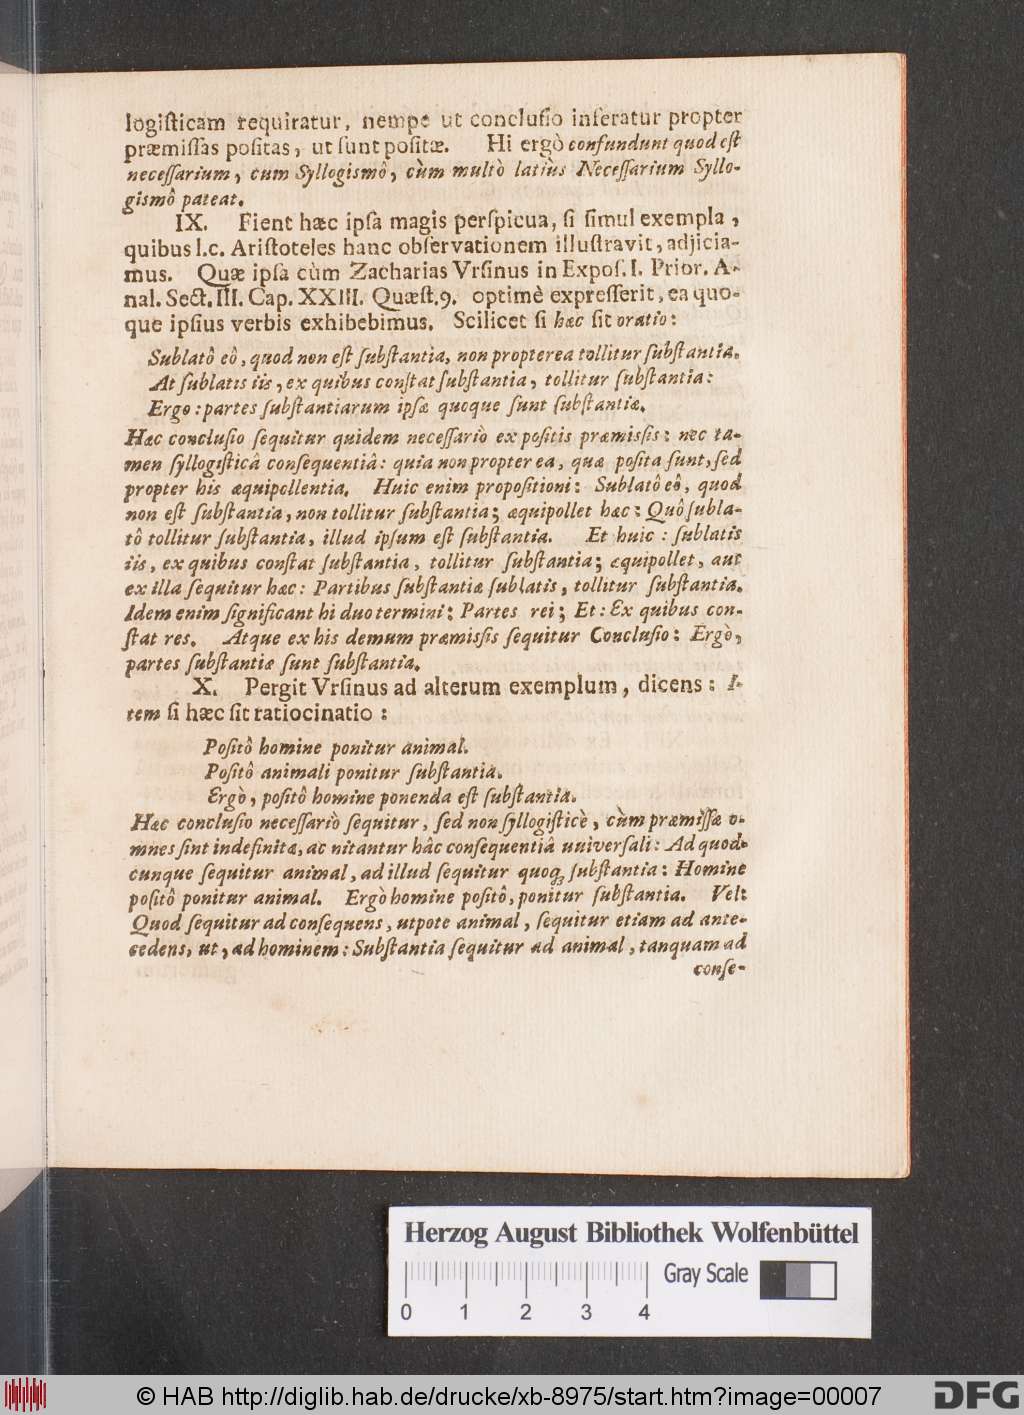 logiſticam requiratur, nempe ut concluſio inferatur propter
præmiſſas poſitas, ut ſunt poſitæ. Hi ergò confundunt quod eſt
neceſſarium, cum Syllogismô, cùm multò latiùs Neceſſarium Syllo-
gismô pateat.
IX. Fient hæc ipſa magis perſpicua, ſi ſimul exempla,
quibus l.c. Ariſtoteles hanc obſervationem illuſtravit, adjicia-
mus. Quæ ipſa cùm Zacharias Vrſinus in Expoſ. I. Prior. A-
nal. Sect. III. Cap. XXIII. Quæſt. 9. optimè expreſſerit, ea quo-
que ipſius verbis exhibebimus. Scilicet ſi hæc ſit oratio:
Sublatô eô, quod non eſt ſubſtantia, non propterea tollitur ſubſtantia.
At ſublatis iis, ex quibus conſtat ſubſtantia, tollitur ſubſtantia:
Ergo: partes ſubſtantiarum ipſæ quoque ſunt ſubſtantiæ.
Hæc concluſio ſequitur quidem neceſſariò ex poſitis præmiſſis: nec ta-
men ſyllogiſticâ conſequentiâ: quia non propter ea, quæ poſita ſunt, ſed
propter his æquipollentia. Huic enim propoſitioni: Sublatô eô, quod
non eſt ſubſtantia, non tollitur ſubſtantia; æquipollet hæc: Quô ſubla-
tô tollitur ſubſtantia, illud ipſum eſt ſubſtantia. Et huic: ſublatis
iis, ex quibus conſtat ſubſtantia, tollitur ſubſtantia; æquipollet, aut
ex illa ſequitur hæc: Partibus ſubſtantiæ ſublatis, tollitur ſubſtantia.
Idem enim ſignificant hi duo termini: Partes rei; Et: Ex quibus con-
ſtat res. Atque ex his demum præmiſſis ſequitur Concluſio: Ergò,
partes ſubſtantiæ ſunt ſubſtantia.
X. Pergit Vrſinus ad alterum exemplum, dicens: I-
tem ſi hæc ſit ratiocinatio:
Poſitô homine ponitur animal.
Poſitô animali ponitur ſubſtantia.
Ergò, poſitô homine ponenda eſt ſubſtantia.
Hæc concluſio neceſſariò ſequitur, ſed non ſyllogiſticè, cùm præmiſſæ o-
mnes ſint indefinitæ, ac nitantur hâc conſequentiâ univerſali: Ad quod-
cunque ſequitur animal, ad illud ſequitur quoq; ſubſtantia: Homine
poſitô ponitur animal. Ergò homine poſitô, ponitur ſubſtantia. Vel:
Quod ſequitur ad conſequens, utpote animal, ſequitur etiam ad ante-
cedens, ut, ad hominem: Subſtantia ſequitur ad animal, tanquam ad
conſe-
Herzog August Bibliothek Wolfenbüttel
Gray Scale
0 1 2 3 4
© HAB http://diglib.hab.de/drucke/xb-8975/start.htm?image=00007
DFG